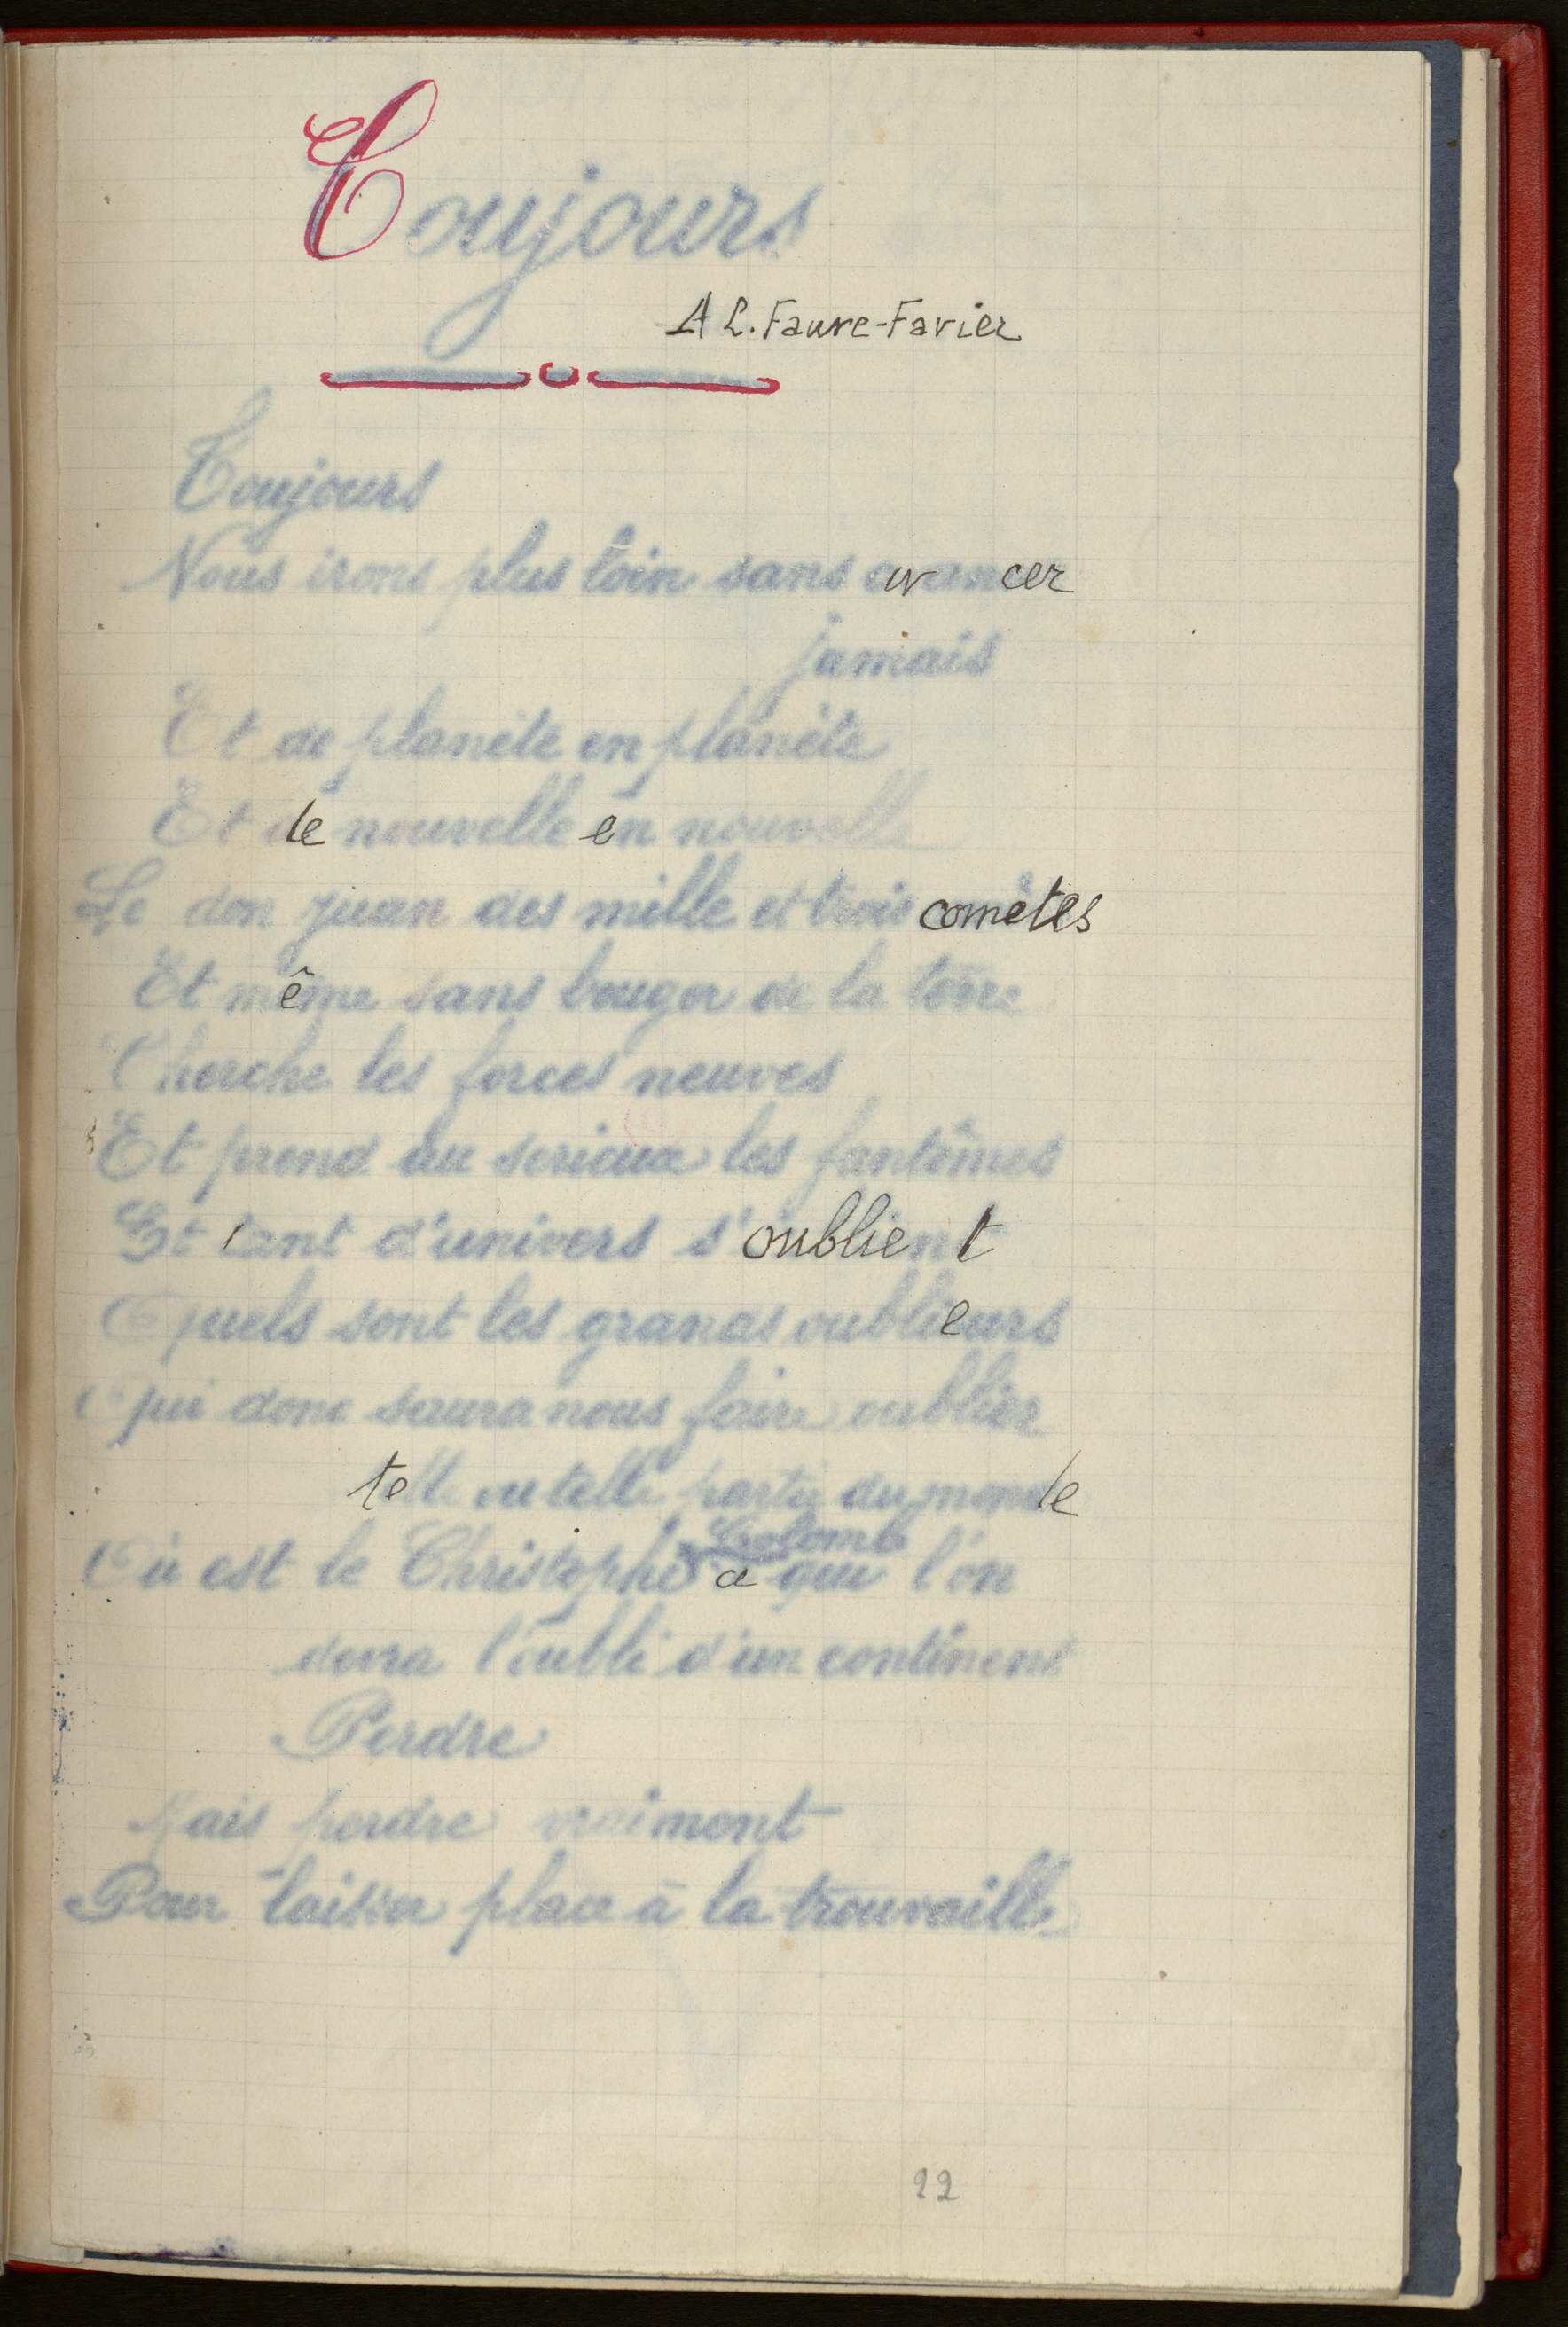 Toujours
A L. Faure-Favier
Toujours
Nous irons plus loin sans avancer
jamais
Et de planète en planète
Et de nouvelle en nouvelle
Le don juan des mille et trois comètes
Et même sans bouger de la terre
Cherche les forces neuves
Et prend au serieux les fantômes
Et tant d'univers s'oublient
Quels sont les grands oublieurs
Qui donc saura nous faire oublier
telle ou telle partie du monde
Colomb
Où est le Christophe à qui l'on
devra l'oubli d'un continent
Perdre
Mais perdre vraiment
Pour laisser place à la trouvaille
22